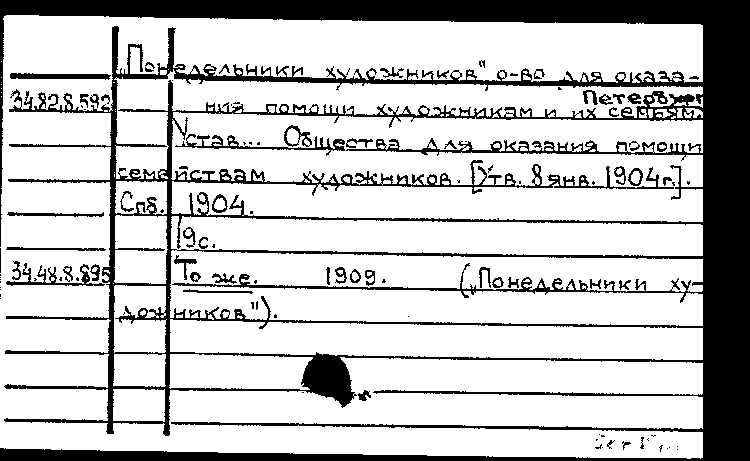 „Понедельники художников", о-во для оказа-
Петербург
34.82.8.592 ния помощи художникам и их семьям.
Устав... Общества для оказания помощи
семействам художников. [Утв. 8 янв. 1904 г.].
Спб. 1904.
19с.
34.48.8.895 То же. 1909. („Понедельники ху-
дожников").